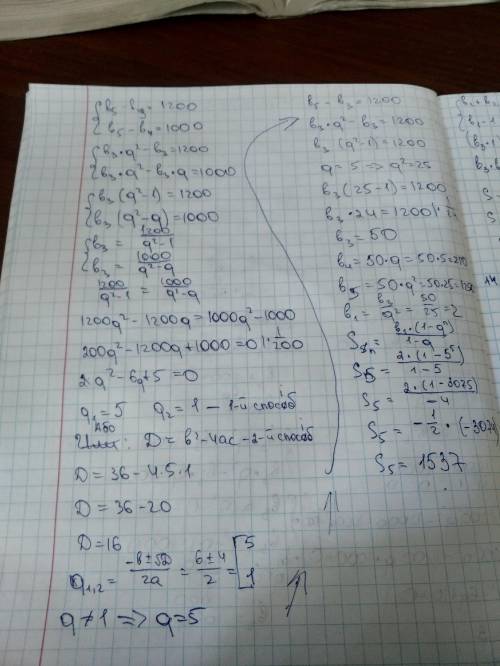 b₅ - b₃ = 1200
b₅ - b₄ = 1000
b₃ • q² - b₃ = 1200
b₃ • q² - b₃ • q = 1000
b₃ (q² - 1) = 1200
b₃ (q² - q) = 1000
b₃ = 1200/(q² - 1)
b₃ = 1000/(q² - q)
1200/(q² - 1) = 1000/(q² - q)
1200q² - 1200q = 1000q² - 1000
200q² - 1200q + 1000 = 0 | • 1/200
q² - 6q + 5 = 0
q₁ = 5 q₂ = 1 — 1-й способ
Або
Или: D = b² - 4ac - 2-й способ
D = 36 - 4 • 5 • 1
D = 36 - 20
D = 16
q₁,₂ = (-b ± √D)/2a = (6 ± 4)/2 = [5 1
q ≠ 1 => q = 5
b₅ - b₃ = 1200
b₃ • q² - b₃ = 1200
b₃ (q² - 1) = 1200
q = 5 => q² = 25
b₃ (25 - 1) = 1200
b₃ • 24 = 1200 | • 1/24
b₃ = 50
b₄ = 50 • q = 50 • 5 = 250
b₅ = 50 • q² = 50 • 25 = 1250
b₁ = b₃/q² = 50/25 = 2
Sₙ = b₁ • (1 - qⁿ)/(1 - q)
S₅ = 2 • (1 - 5⁵)/(1 - 5)
S₅ = 2 • (1 - 3075)/-4
S₅ = -1/2 • (-3074
S₅ = 1537